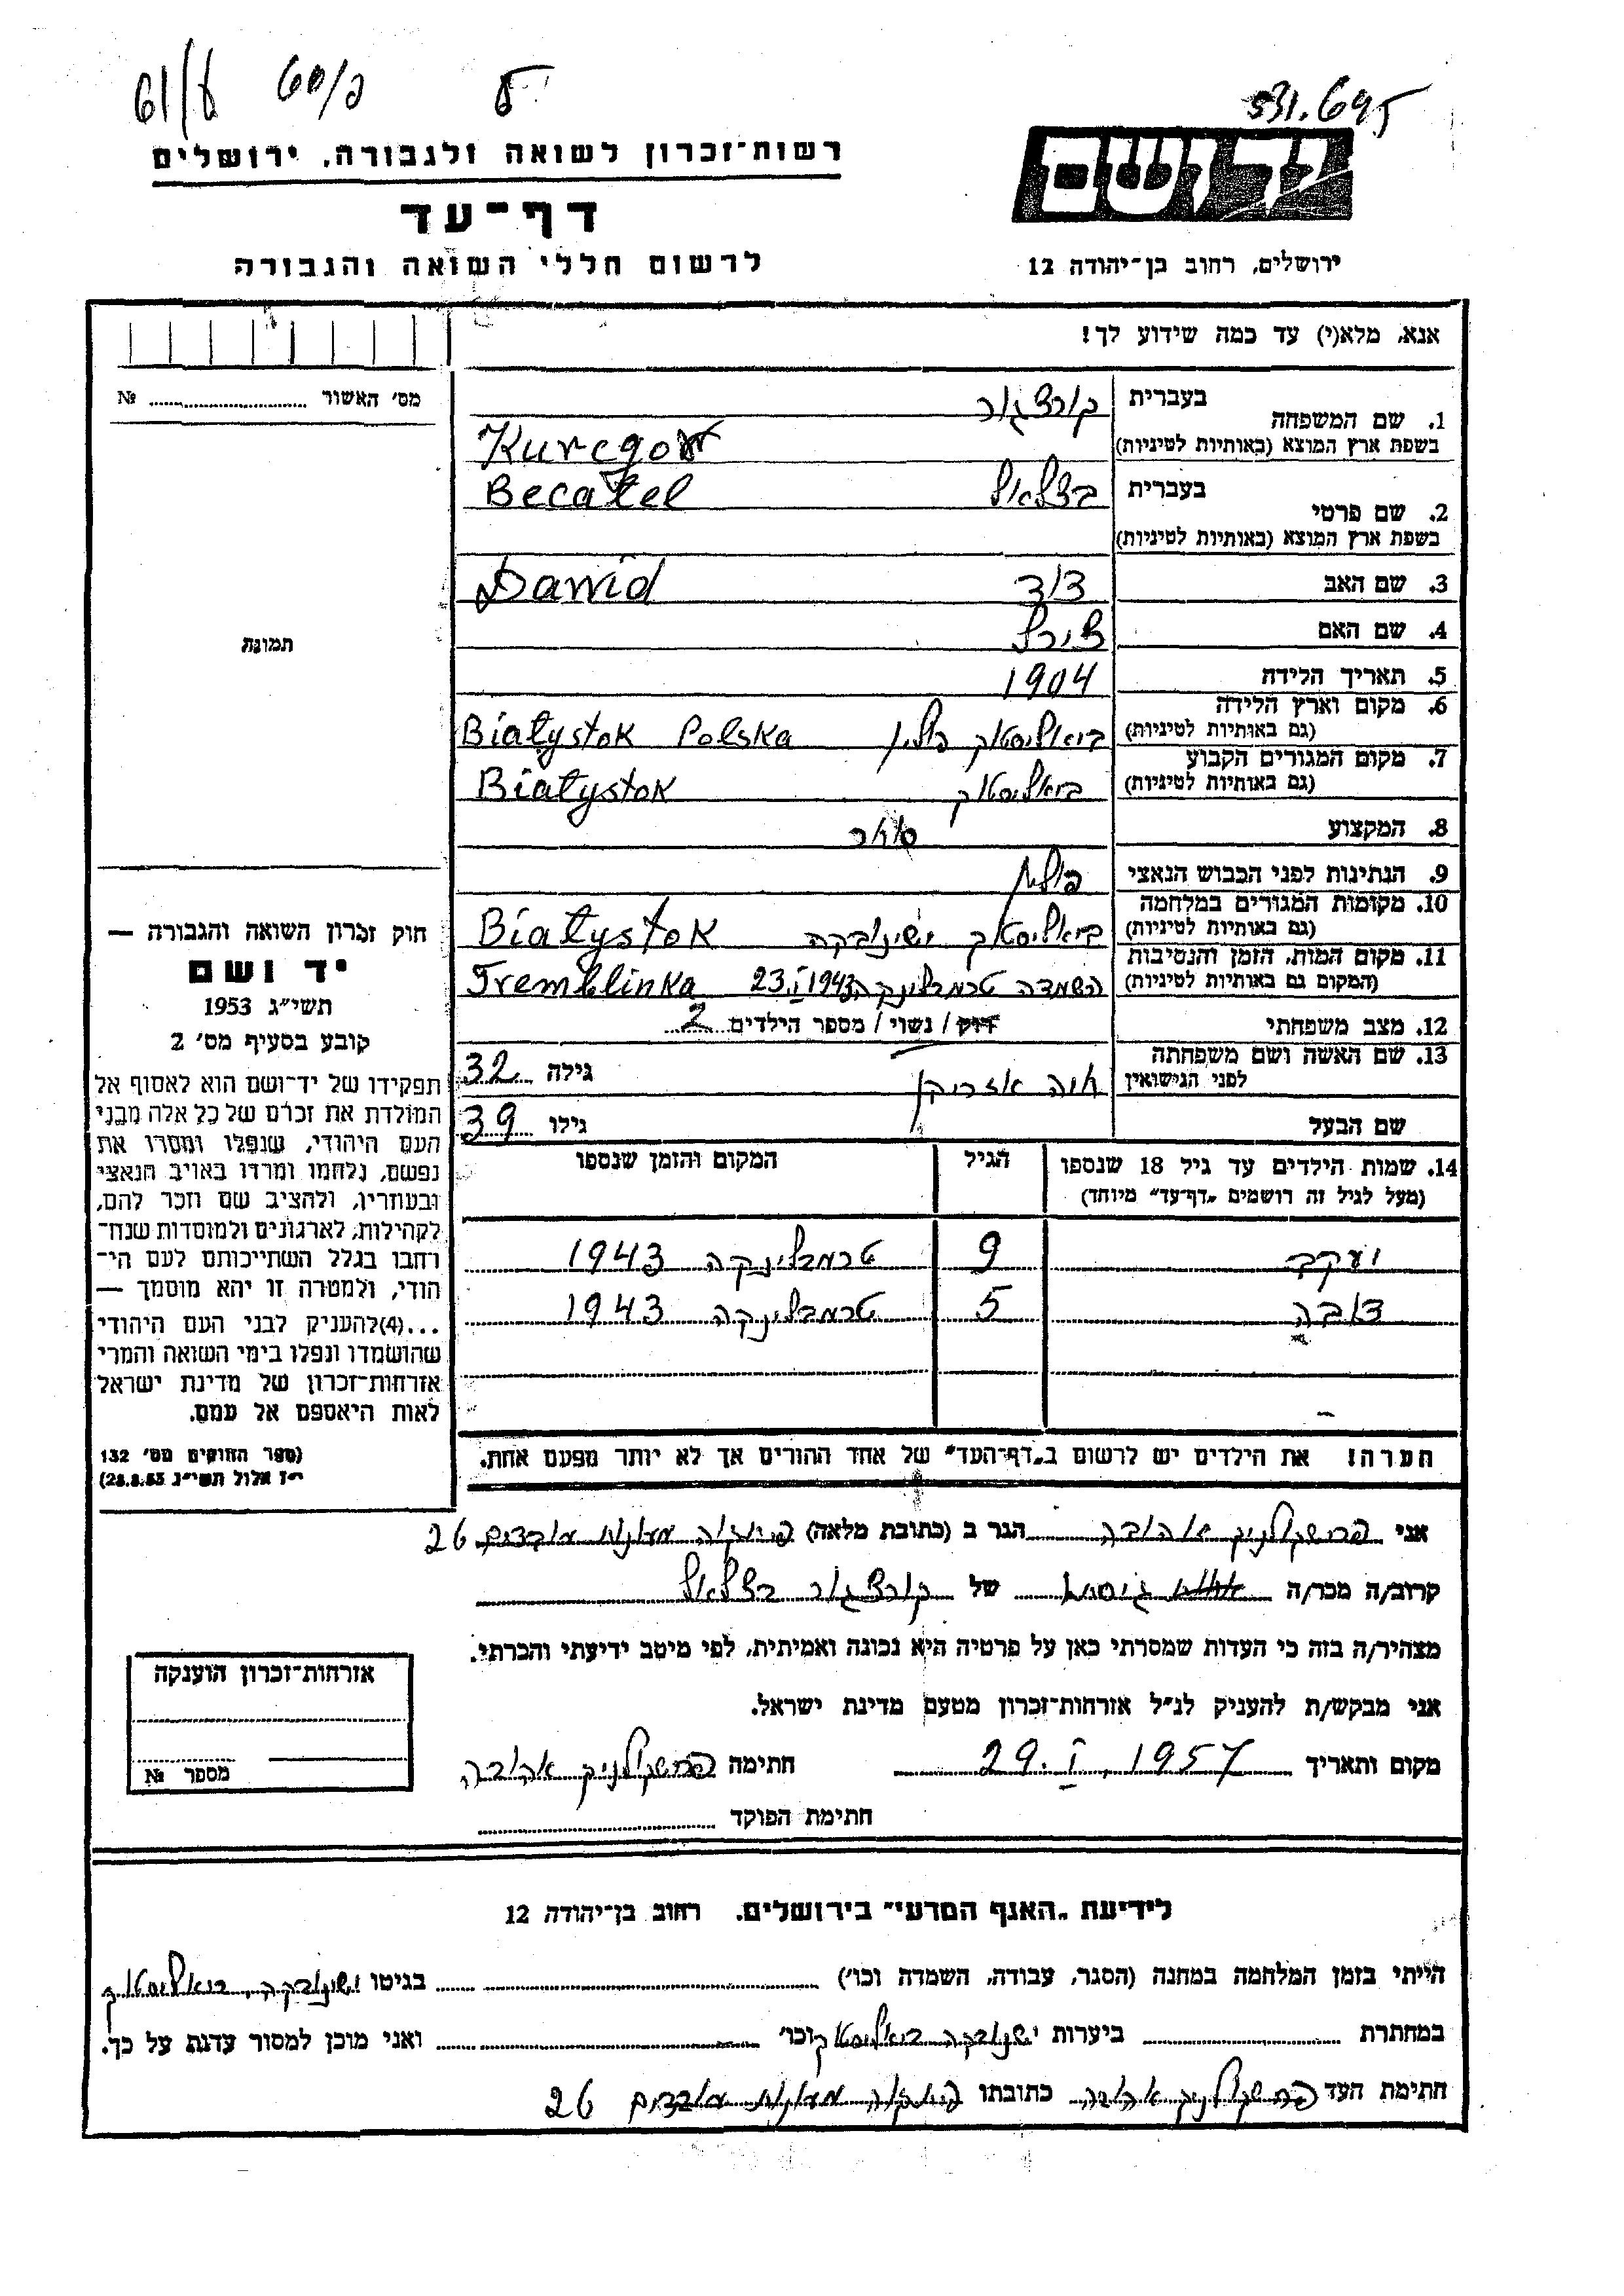 531.695
רשות־זכרון לשואה ולגבורה, ירושלים
יד ושם
דף־עד
ירושלים, רחוב בן־יהודה 12
לרשום חללי השואה והגבורה
אנא, מלא(י) עד כמה שידוע לך!
מס׳ האשור № ....................
1. שם המשפחה בעברית קורצגור
בשפת ארץ המוצא (באותיות לטיניות) Kurcgor
2. שם פרטי בעברית בצלאל Becalel
בשפת ארץ המוצא (באותיות לטיניות)
3. שם האב דוד Dawid
4. שם האם צירל
5. תאריך הלידה 1904
6. מקום וארץ הלידה (גם באותיות לטיניות) ביאליסטוק פולין Białystok Polska
7. מקום המגורים הקבוע (גם באותיות לטיניות) ביאליסטוק Białystok
8. המקצוע סוחר
9. הנתינות לפני הכבוש הנאצי פולנית
10. מקומות המגורים במלחמה (גם באותיות לטיניות) ביאליסטוק ישינובקה Białystok
11. מקום המות, הזמן והנסיבות (המקום גם באותיות לטיניות) השמדה טרמבלינקה 23.I.1943 Tremblinka
12. מצב משפחתי רוק / נשוי / מספר הילדים 2
13. שם האשה ושם משפחתה לפני הנישואין חוה גילה 32
שם הבעל גילו 39
תמונה
14. שמות הילדים עד גיל 18 שנספו הגיל המקום והזמן שנספו
(מעל לגיל זה רושמים „דף־עד״ מיוחד)
יעקב 9 טרמבלינקה 1943
דובה 5 טרמבלינקה 1943
הערה! את הילדים יש לרשום ב„דף־העד״ של אחד ההורים אך לא יותר מפעם אחת.
חוק זכרון השואה והגבורה —
יד ושם
תשי״ג 1953
קובע בסעיף מס׳ 2
תפקידו של יד־ושם הוא לאסוף אל
המולדת את זכרם של כל אלה מבני
העם היהודי, שנפלו ומסרו את
נפשם, נלחמו ומרדו באויב הנאצי
ובעוזריו, ולהציב שם וזכר להם,
לקהילות, לארגונים ולמוסדות שנח־
רחבו בגלל השתייכותם לעם הי־
הודי, ולמטרה זו יהא מוסמך —
...(4)להעניק לבני העם היהודי
שהושמדו ונפלו בימי השואה והמרי
אזרחות־זכרון של מדינת ישראל
לאות היאספם אל עמם.
(ספר החוקים מס׳ 132
י״ז אלול תשי״ג 28.8.53)
אני פרושקולניק אהובה הגר ב (כתובת מלאה) מעונות עובדים 26
קרוב/ה מכר/ה גיסתו של קורצגור בצלאל
מצהיר/ה בזה כי העדות שמסרתי כאן על פרטיה היא נכונה ואמיתית, לפי מיטב ידיעתי והכרתי.
אני מבקש/ת להעניק לנ״ל אזרחות־זכרון מטעם מדינת ישראל.
מקום ותאריך 29.I.1957 חתימה פרושקולניק אהובה
חתימת הפוקד
אזרחות־זכרון הוענקה
מספר №
לידיעת „האגף המדעי״ בירושלים, רחוב בן־יהודה 12
הייתי בזמן המלחמה במחנה (הסגר, עבודה, השמדה וכו׳) בגיטו ישינובקה, ביאליסטוק
במחתרת ביערות ישנובקה ביאליסטוק וכו׳ ואני מוכן למסור עדות על כך.
חתימת העד פרושקולניק אהובה כתובתו מעונות עובדים 26